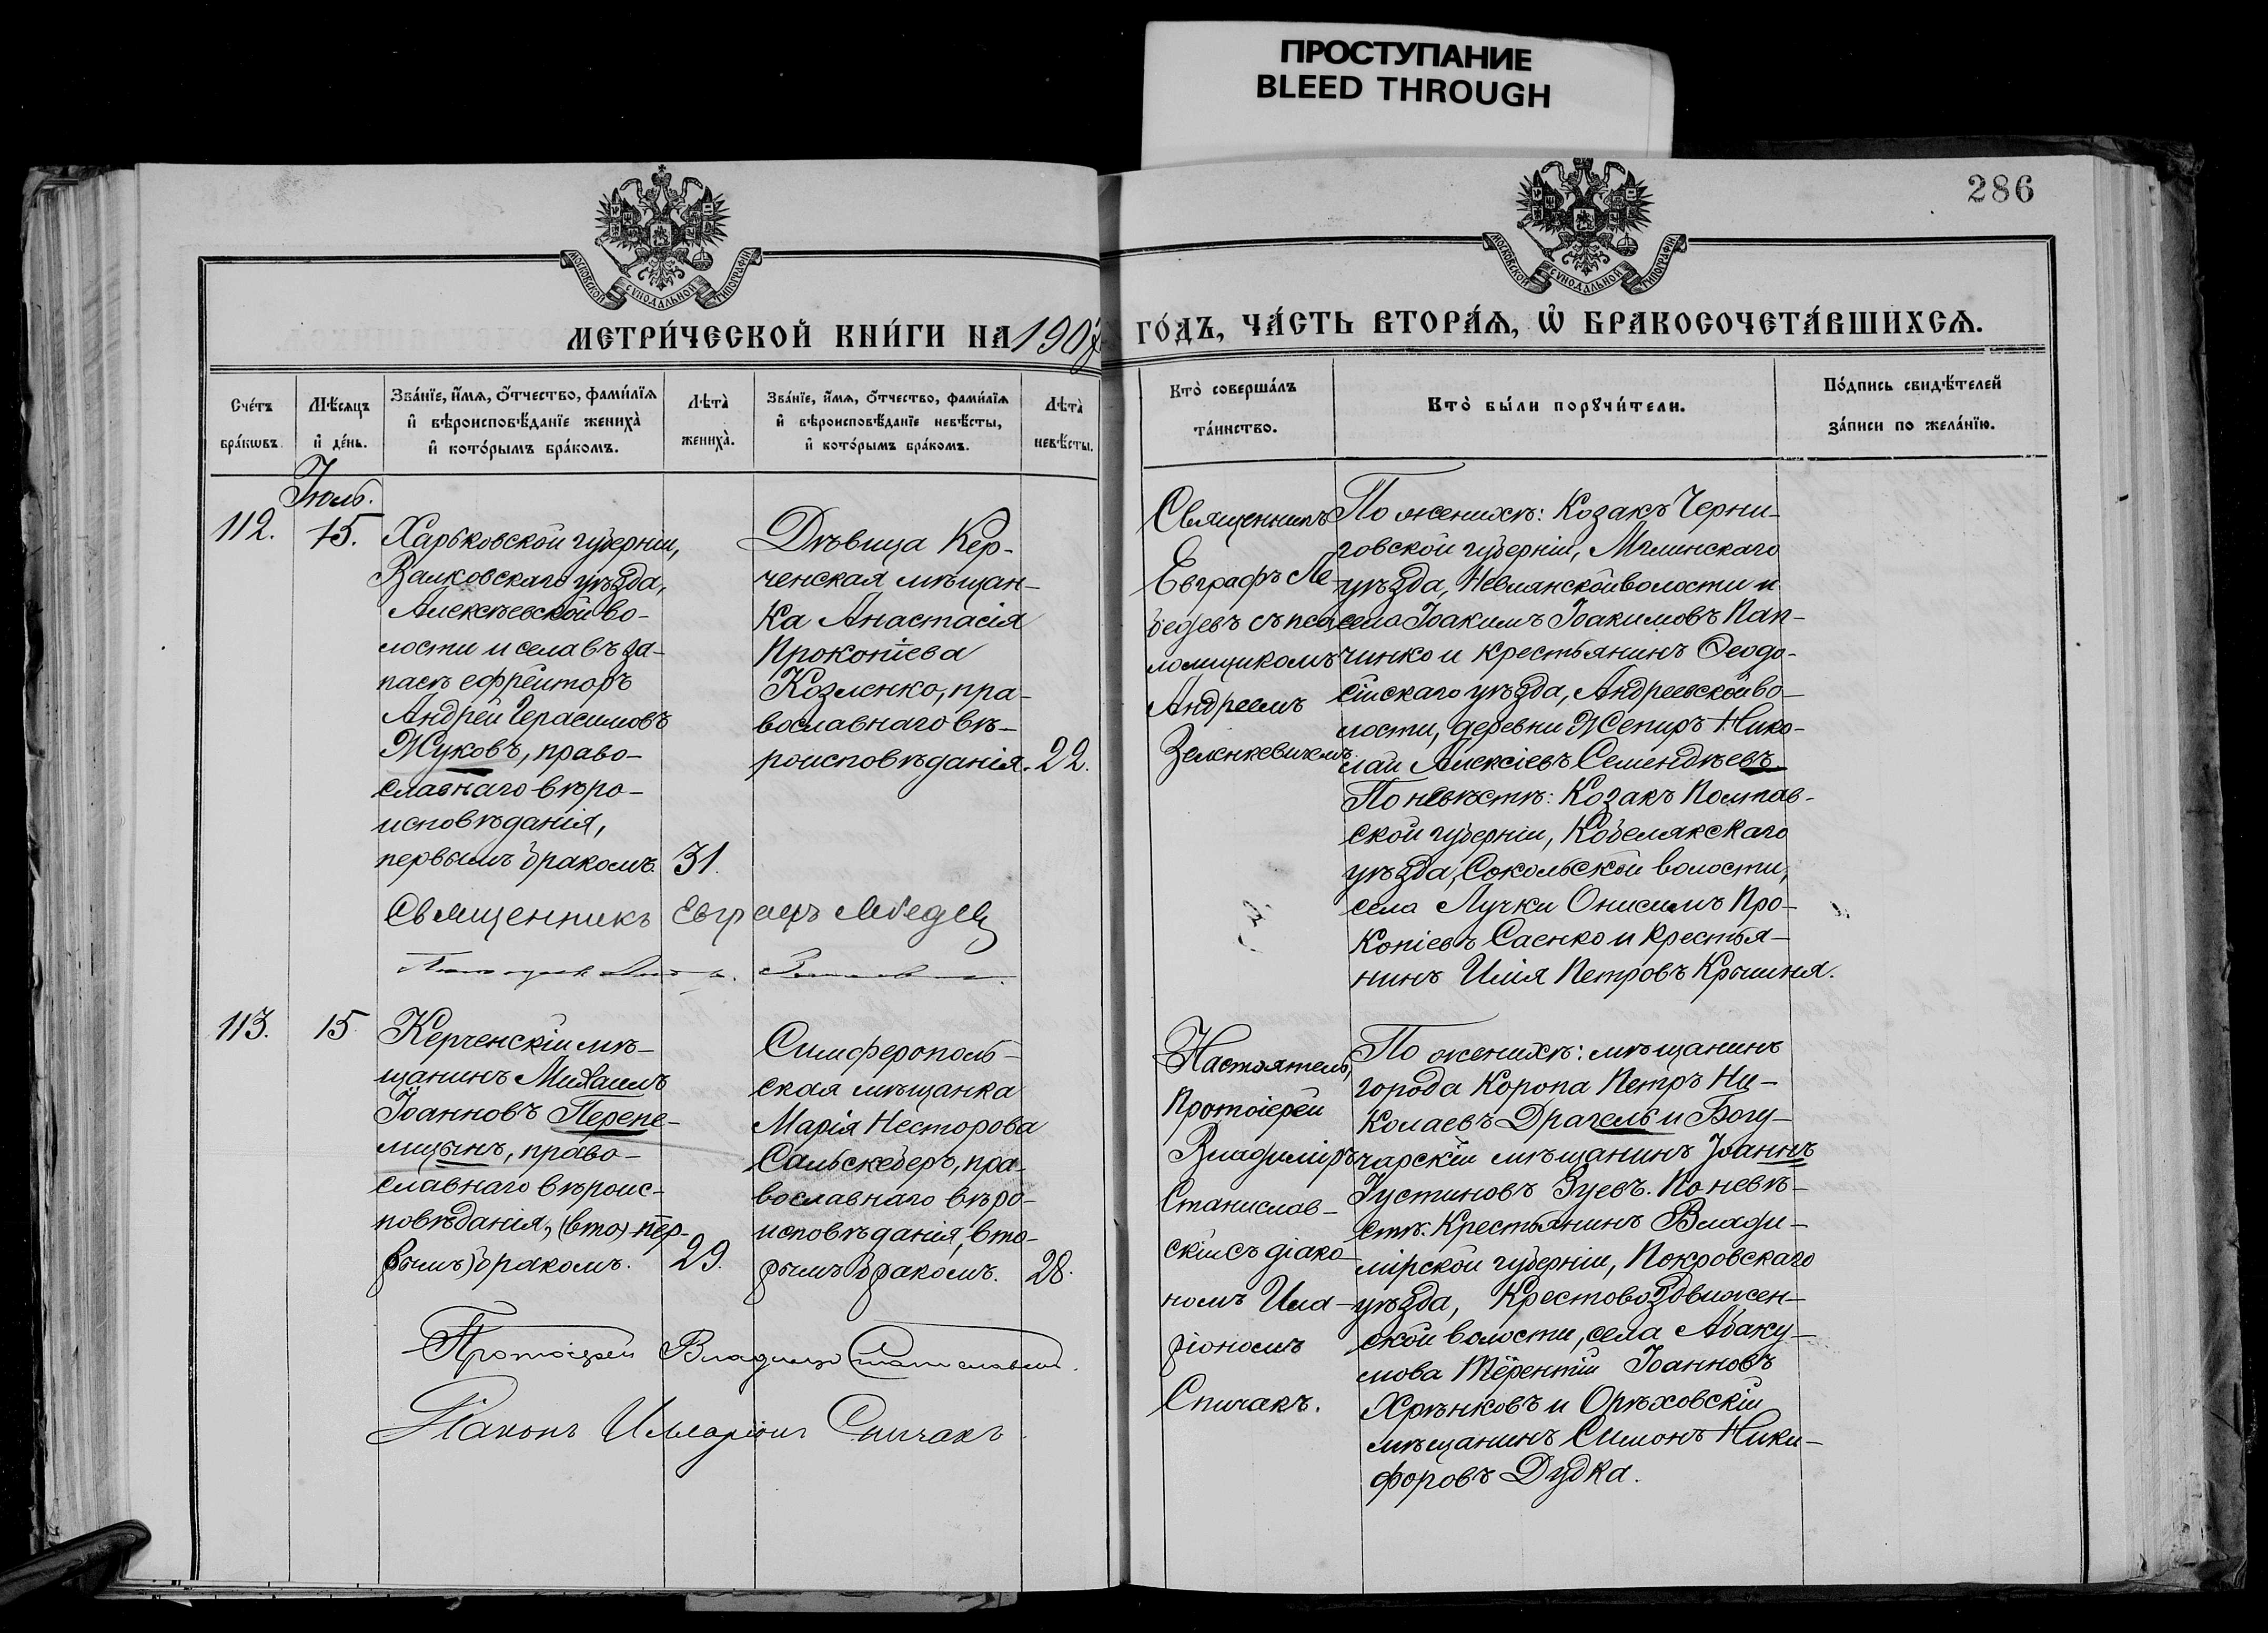 ПРОСТУПАНИЕ
BLEED THROUGH
286
МОСКОВСКОЙ СѴНОДАЛЬНОЙ ТИПОГРАФІИ
МОСКОВСКОЙ СѴНОДАЛЬНОЙ ТИПОГРАФІИ
МЕТРИ́ЧЕСКОЙ КНИ́ГИ НА 1907
ГО́ДЪ, ЧА́СТЬ ВТОРА́Ѧ, Ѿ БРАКОСОЧЕТА́ВШИХСѦ.
Сче́тъ
бра́кѡвъ
Мѣ́сяцъ
и҆ де́нь.
Зва́нїе, и҆́мѧ, ѻ҆́тчество, фами́лїѧ
и҆ вѣроисповѣ́данїе жениха̀
и҆ кото́рымъ бра́комъ.
Лѣта̀
жениха̀.
Зва́нїе, и҆́мѧ, ѻ҆́тчество, фами́лїѧ
и҆ вѣроисповѣ́данїе невѣ́сты,
и҆ кото́рымъ бра́комъ.
Лѣта̀
невѣ́сты.
Кто̀ соверша́лъ
та́инство.
Кто̀ бы́ли порꙋчи́тели.
По́дпись свидѣ́телей
за́писи по жела́нїю.
Іюль.
112.
15.
Харьковской губерніи,
Валковскаго уѣзда,
Алексѣевской во-
лости и села въ за-
пасѣ ефрейторъ
Андрей Герасимовъ
Жуковъ, право-
славнаго вѣро-
исповѣданія,
первымъ бракомъ.
31.
Дѣвица Кер-
ченская мѣщан-
ка Анастасія
Прокопіева
Козленко, пра-
вославнаго вѣ-
роисповѣданія.
22.
Священникъ
Евграфъ Ле-
бедевъ съ пса-
ломщикомъ
Андреемъ
Зеленкевичемъ
По женихѣ: Козакъ Черни-
говской губерніи, Мглинскаго
уѣзда, Нивлянской волости и
села Іоакимъ Іоакимовъ Пап-
чинко и крестьянинъ Ѳеодо-
сійскаго уѣзда, Андреевской во-
лости, деревни Жепиръ Нико-
лай Алексіевъ Семендѣевъ.
По невѣстѣ: Козакъ Полтав-
ской губерніи, Кобелякскаго
уѣзда, Сокольской волости,
села Лучки Онисимъ Про-
копіевъ Саенко и крестья-
нинъ Илія Петровъ Крышня.
Священникъ Евграфъ Лебедевъ
113.
15
Керченскій мѣ-
щанинъ Михаилъ
Іоанновъ Перепе-
лицынъ, право-
славнаго вѣроис-
повѣданія, (вто) пер-
(рымъ) бракомъ.
29.
Симферополь-
ская мѣщанка
Марія Несторова
Сальскеберъ, пра-
вославнаго вѣро-
исповѣданія, вто-
рымъ бракомъ.
28.
Настоятель,
Протоіерей
Владиміръ
Станислав-
скій съ діако-
номъ Ила-
ріономъ
Спичакъ.
По женихѣ: мѣщанинъ
города Коропа Петръ Ни-
колаевъ Драгель и Богу-
чарскій мѣщанинъ Іоаннъ
Іустиновъ Зуевъ. По невѣ-
стѣ: Крестьянинъ Влади-
мірской губерніи, Покровскаго
уѣзда, Крестовоздвижен-
ской волости, села Абаку-
мова Терентій Іоанновъ
Хрѣнковъ и Орѣховскій
мѣщанинъ Симонъ Ники-
форовъ Дудка.
Протоіерей Владиміръ Станиславскій.
Діаконъ Илларіонъ Спичакъ